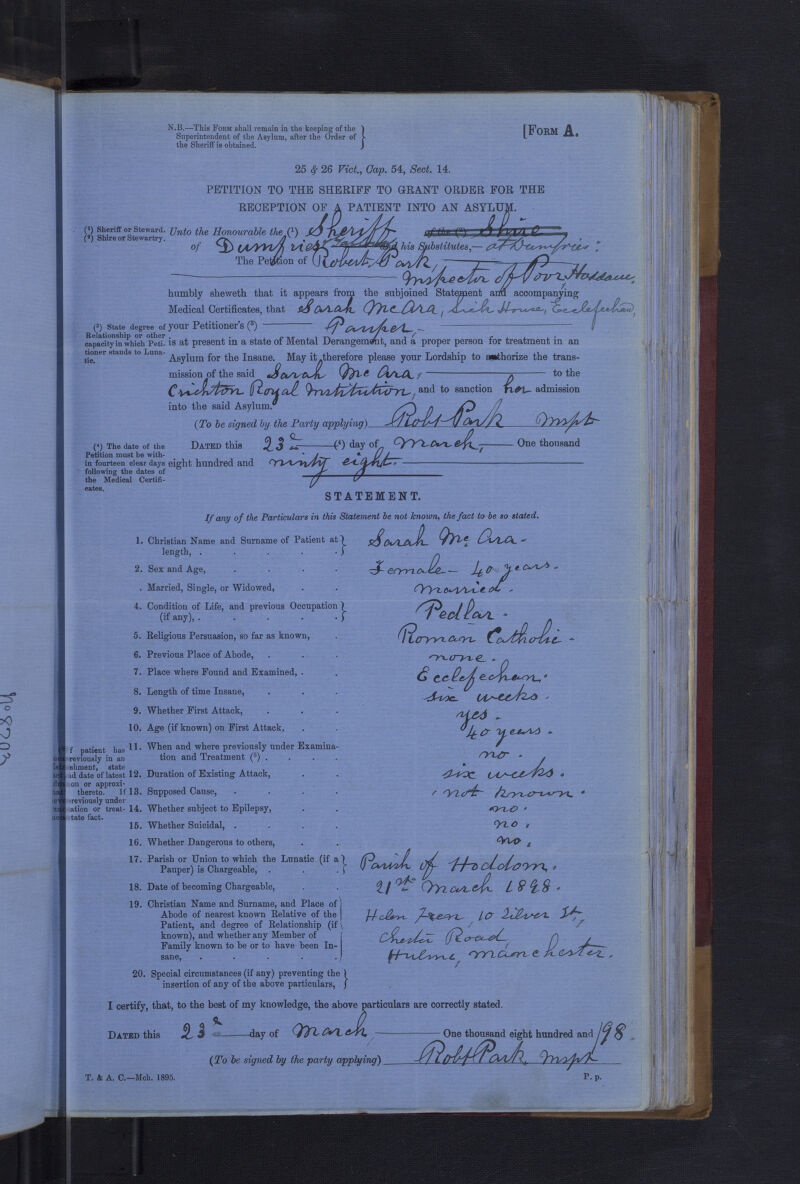 N.B.—This Form shall remain in the keeping of the
Superintendent of the Asylum, after the Order of
the Sheriff is obtained.
[Form A.
25 & 26 Vict., Cap. 54, Sect. 14.
PETITION TO THE SHERIFF TO GRANT ORDER FOR THE
RECEPTION OF A PATIENT INTO AN ASYLUM.
(¹) Sheriff or Steward.
(²) Shire or Stewartry.
Unto the Honourable the (¹) Sheriff of the (²) Shire
of Dumfries and his Substitutes,— at Dumfries.
The Petition of Robert Park,
Inspector of Poor, Hoddam,
humbly sheweth that it appears from the subjoined Statement and accompanying
Medical Certificates, that Sarah McAra, Sick House, Ecclefechan,
(³) State degree of
Relationship or other
capacity in which Peti-
tioner stands to Luna-
tic.
your Petitioner's (³) Pauper,
is at present in a state of Mental Derangement, and a proper person for treatment in an
Asylum for the Insane. May it therefore please your Lordship to authorize the trans-
mission of the said Sarah McAra, to the
Crichton Royal Institution, and to sanction her admission
into the said Asylum.
(To be signed by the Party applying) Robt Park Inspr
(⁴) The date of the
Petition must be with-
in fourteen clear days
following the dates of
the Medical Certifi-
cates.
Dated this 23d (⁴) day of March, One thousand
eight hundred and ninty eight.
STATEMENT.
If any of the Particulars in this Statement be not known, the fact to be so stated.
1. Christian Name and Surname of Patient at length, . Sarah McAra -
2. Sex and Age, Female - 40 years -
. Married, Single, or Widowed, married -
4. Condition of Life, and previous Occupation (if any), . Pedlar -
5. Religious Persuasion, so far as known, Roman Catholic -
6. Previous Place of Abode, none -
7. Place where Found and Examined, . Ecclefechan.
8. Length of time Insane, six weeks -
9. Whether First Attack, yes -
10. Age (if known) on First Attack, 40 years -
11. When and where previously under Examina-
tion and Treatment (⁵) . no -
12. Duration of Existing Attack, six weeks.
13. Supposed Cause, not known.
14. Whether subject to Epilepsy, no.
15. Whether Suicidal, . no.
16. Whether Dangerous to others, no.
17. Parish or Union to which the Lunatic (if a
Pauper) is Chargeable, . Parish of Hoddom.
18. Date of becoming Chargeable, 21st March 1898.
19. Christian Name and Surname, and Place of
Abode of nearest known Relative of the
Patient, and degree of Relationship (if
known), and whether any Member of
Family known to be or to have been In-
sane,
Helen 10 Silver St,
Chester Road,
Hulme, Manchester.
20. Special circumstances (if any) preventing the
insertion of any of the above particulars,
f patient has
reviously in an
shment, state
nd date of latest
on or approxi-
thereto. If
reviously under
ation or treat-
tate fact.
No 8203
I certify, that, to the best of my knowledge, the above particulars are correctly stated.
Dated this 23d day of March One thousand eight hundred and /98.
(To be signed by the party applying) Robt Park, Inspr
T. & A. C.—Mch. 1895.
P. p.